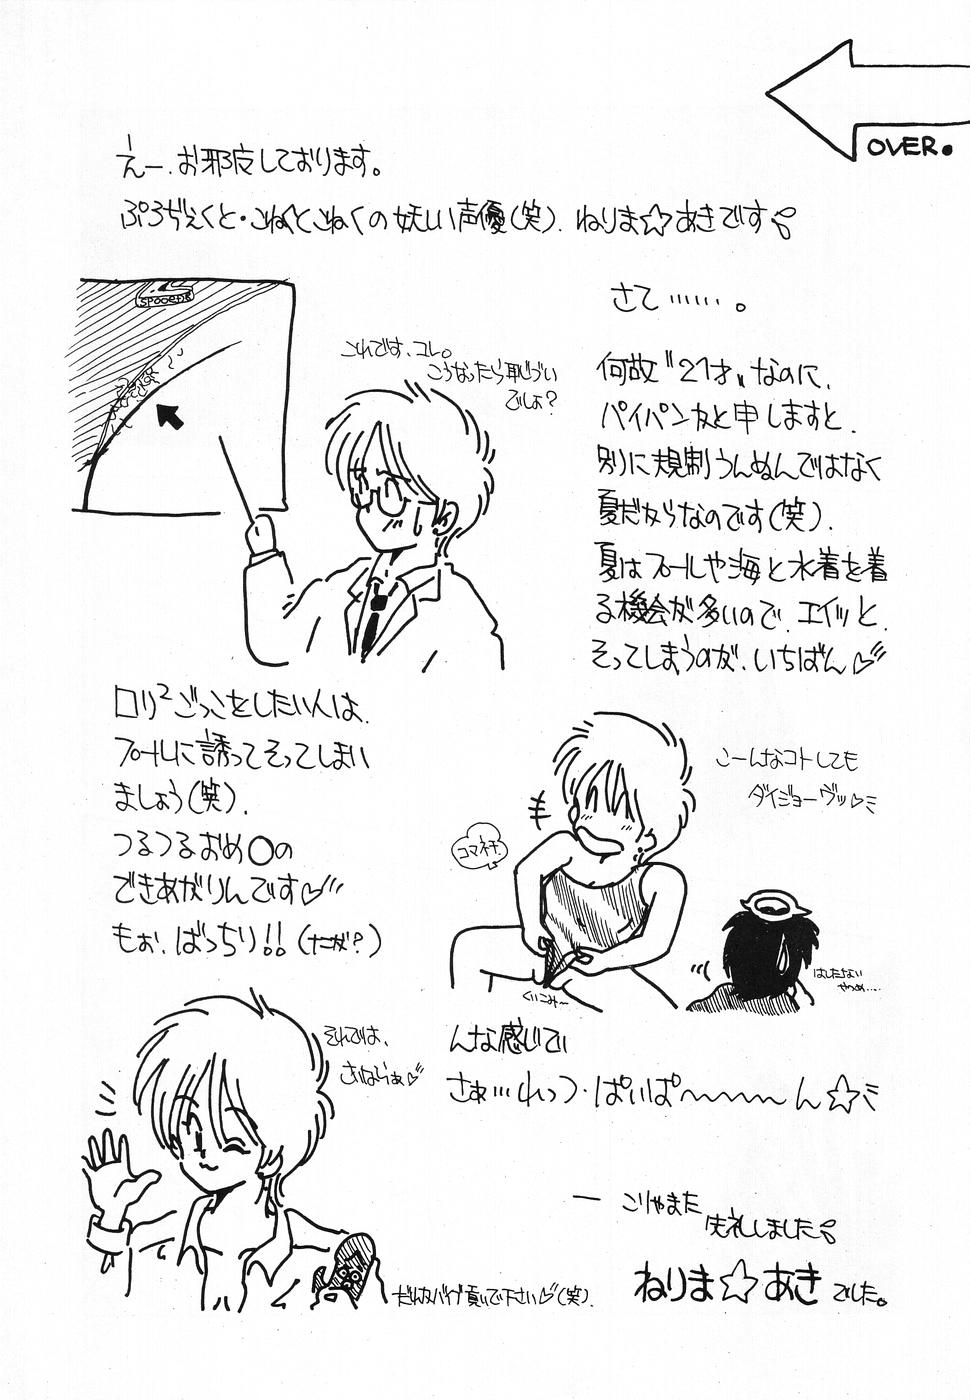 OVER.
えー、お邪魔しております。
ぷろぢぇくと・こねくとこねくの妖しい声優(笑)、ねりま☆あきです
SPOOEDE
さて……。
これでは、コレ。
こうなったら恥じづい
でしょ?
何故〝21才〟なのに、
パイパンかと申しますと、
別に規制うんぬんではなく
夏だからなのです(笑)、
夏はプールや海と水着を着
る機会が多いので、エイッと、
そってしまうのが、いちばん♡
ロリ²ごっこをしたい人は、
プールに誘ってそってしまい
ましょう(笑)、
つるつるおめ○の
できあがりんです♡
もぉ、ばっちり!!(なにが?)
こーんなコトしても
ダイジョーヴッ♡
コマネチ
くいこみ〜
はしたない
やつめ…
んな感じでい
さぁ…れっつ・ぱいぱ〜〜〜〜ん☆
それでは、
さいならぁ♡
だんなバイブ買いて下さい♡(笑)、
— こりゃまた
失礼しました
ねりま☆あきでした。